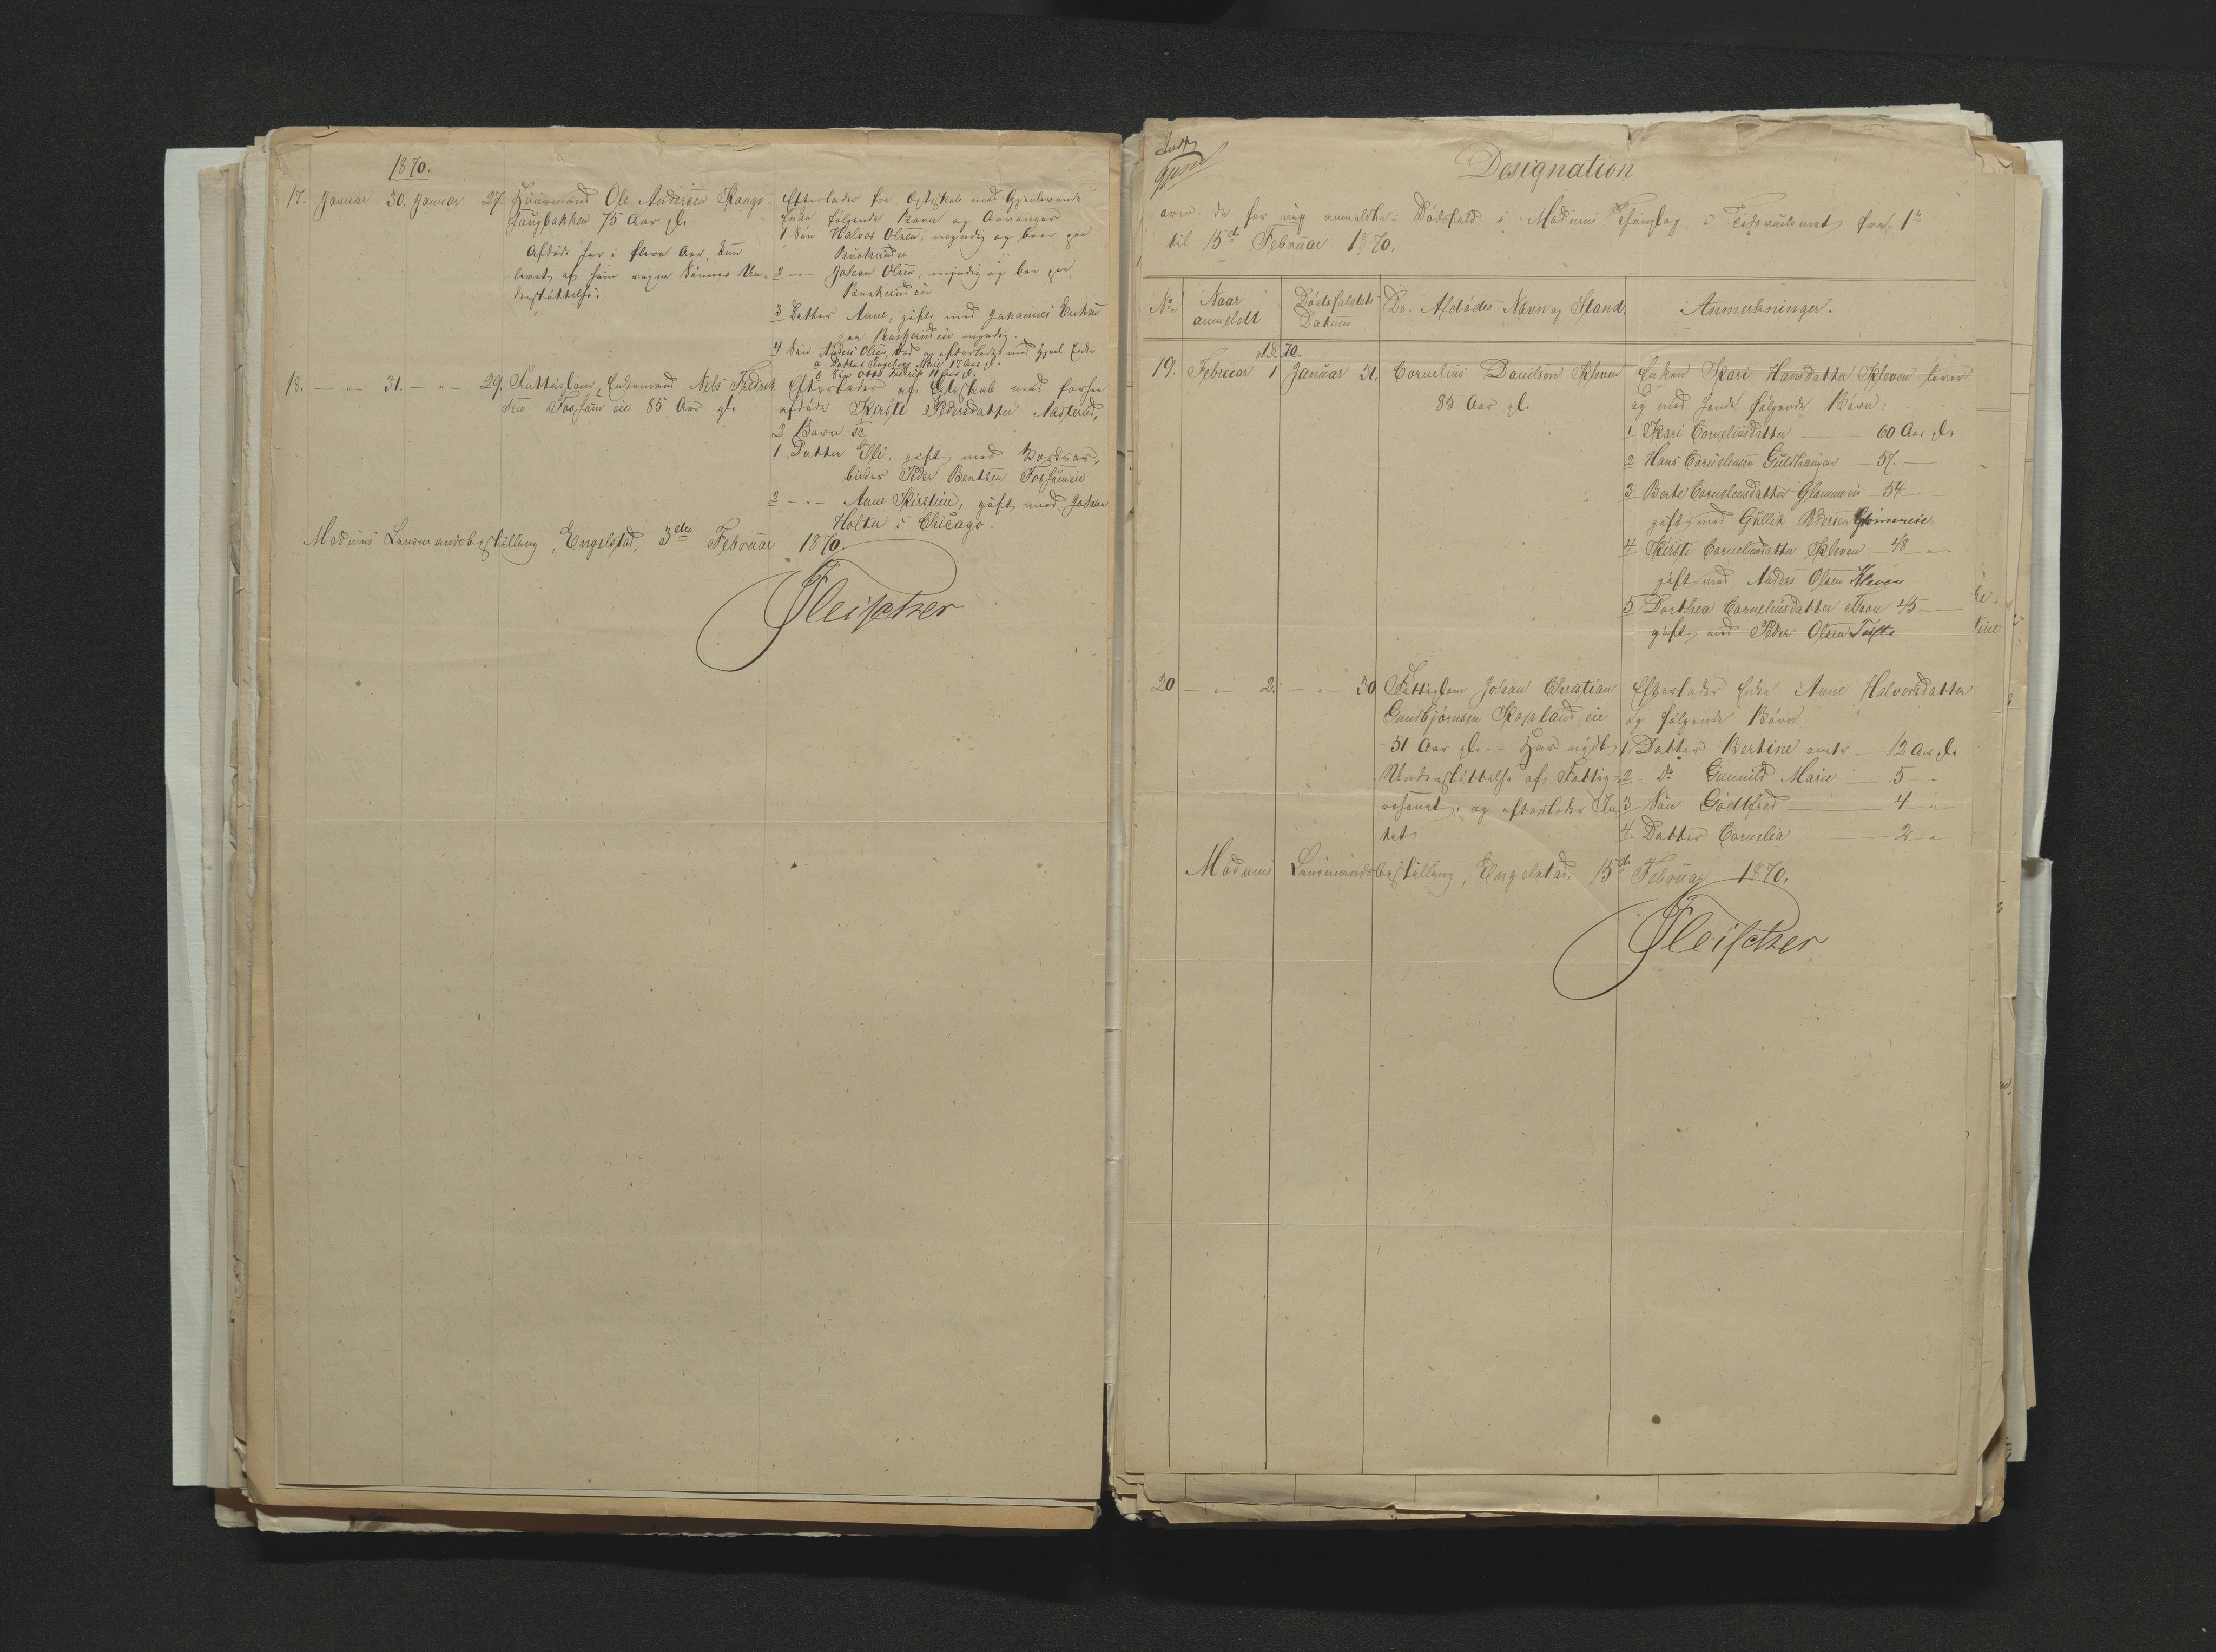 1870.
17. Januar 30. Januar 27. Huusmand Ole Andersen Skougs-
haugbakken 75 Aar gl.
Afdøde har i flere Aar, kun
levet af sine Sønners Un-
derstøttelse.
Efterlader fra Ægteskab med Gjenlevende
Enke følgende Børn og Arvinger
1 Søn Halvor Olsen, myndig og boer paa
Buskerudeie
2 -"- Johan Olsen, myndig og boer paa
Buskerudeie
3 Datter Anne, gift med Johannes
paa Buskerudeie myndig
4 Søn Anders Olsen død og efterlader med gjenl. Enke
a Datter Ingeborg Marie 17 Aar gl.
b Søn Otto Fredrik 11 Aar gl.
18. -"- 31. -"- 29. Fattiglem, Enkemand Nels Fredrik-
sen Fossumeie 85 Aar gl.
Efterlader af Ægteskab med forhen
afdøde Kirsti Pedersdatter
2 Børn
1 Datter Elli, gift med
Peder Bentsen Fossumeie
2 -"- Anne Kirstine, gift med Johan
Holter i Chicago.
Modums Lensmandsbestilling, Engelstad, 3die Februar 1870.
Fleischer
Designation
over de for mig anmeldte Dødsfald i Modums Thinglag i Tidsrummet fra 1ste
til 15de Februar 1870.
No
Naar
anmeldt
Dødsfaldets
Datum
De Afdødes Navn og Stand.
Anmerkninger.
1870.
19. Februar 1 Januar 31. Cornelius Danielsen Kleven
85 Aar gl.
Enken Kari Hansdatter Kleven lever
og med hende følgende Børn:
1 Kari Corneliusdatter 60 Aar gl.
2 Hans Corneliusen Guldhaugen 57. -
3 Berte Corneliusdatter Glommeie 54
gift med Gullik Pedersen Glommeie.
4 Kirsti Corneliusdatter Kleven 48 -"-
gift med Anders Olsen Kleven
5 Dorthea Corneliusdatter 45 -
gift med Peder Olsen
20 -"- 2. -"- 30 Fattiglem Johan Christian
Gundbjørnsen Kopland eie
51 Aar gl. - Har nydt
Understøttelse af Fattig-
væsenet, og efterlader In-
tet
Efterlader Enke Anne Halvorsdatter
og følgende Børn
1 Datter Bertine omtr. 12 Aar gl.
2 - do Gunnild Marie 5 -
3 Søn Godtfred 4 "
4 Datter Cornelia 2 "
Modums Lensmandsbestilling, Engelstad, 15de Februar 1870.
Fleischer